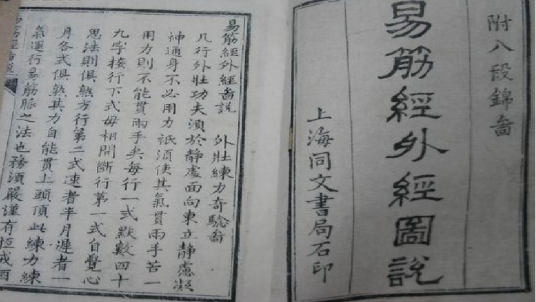 附八段錦啚
易筋經外經圖說
上海同文書局石印
易筋經外經啚說 外壯練力奇驗啚
凡行外壯功夫須於靜處面向東立靜慮凝
神通身不必用力衹須使其氣貫兩手若一
用力則不能貫兩手矣每行一式默數四十
九字挨行下式毋相間斷行第一式自覺心
思法則俱熟方行第二式速者半月遲者一
月各式俱熟其力自能貫上頭頂此練力練
氣運行易筋脈之法也務須嚴謹有恆戒